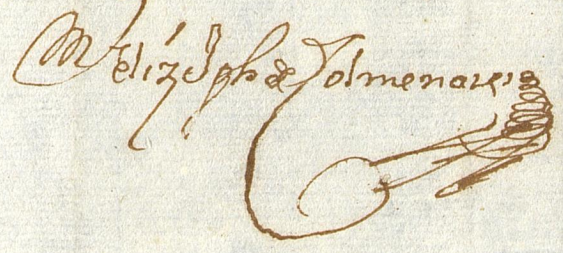 Feliz Jph de Colmenares